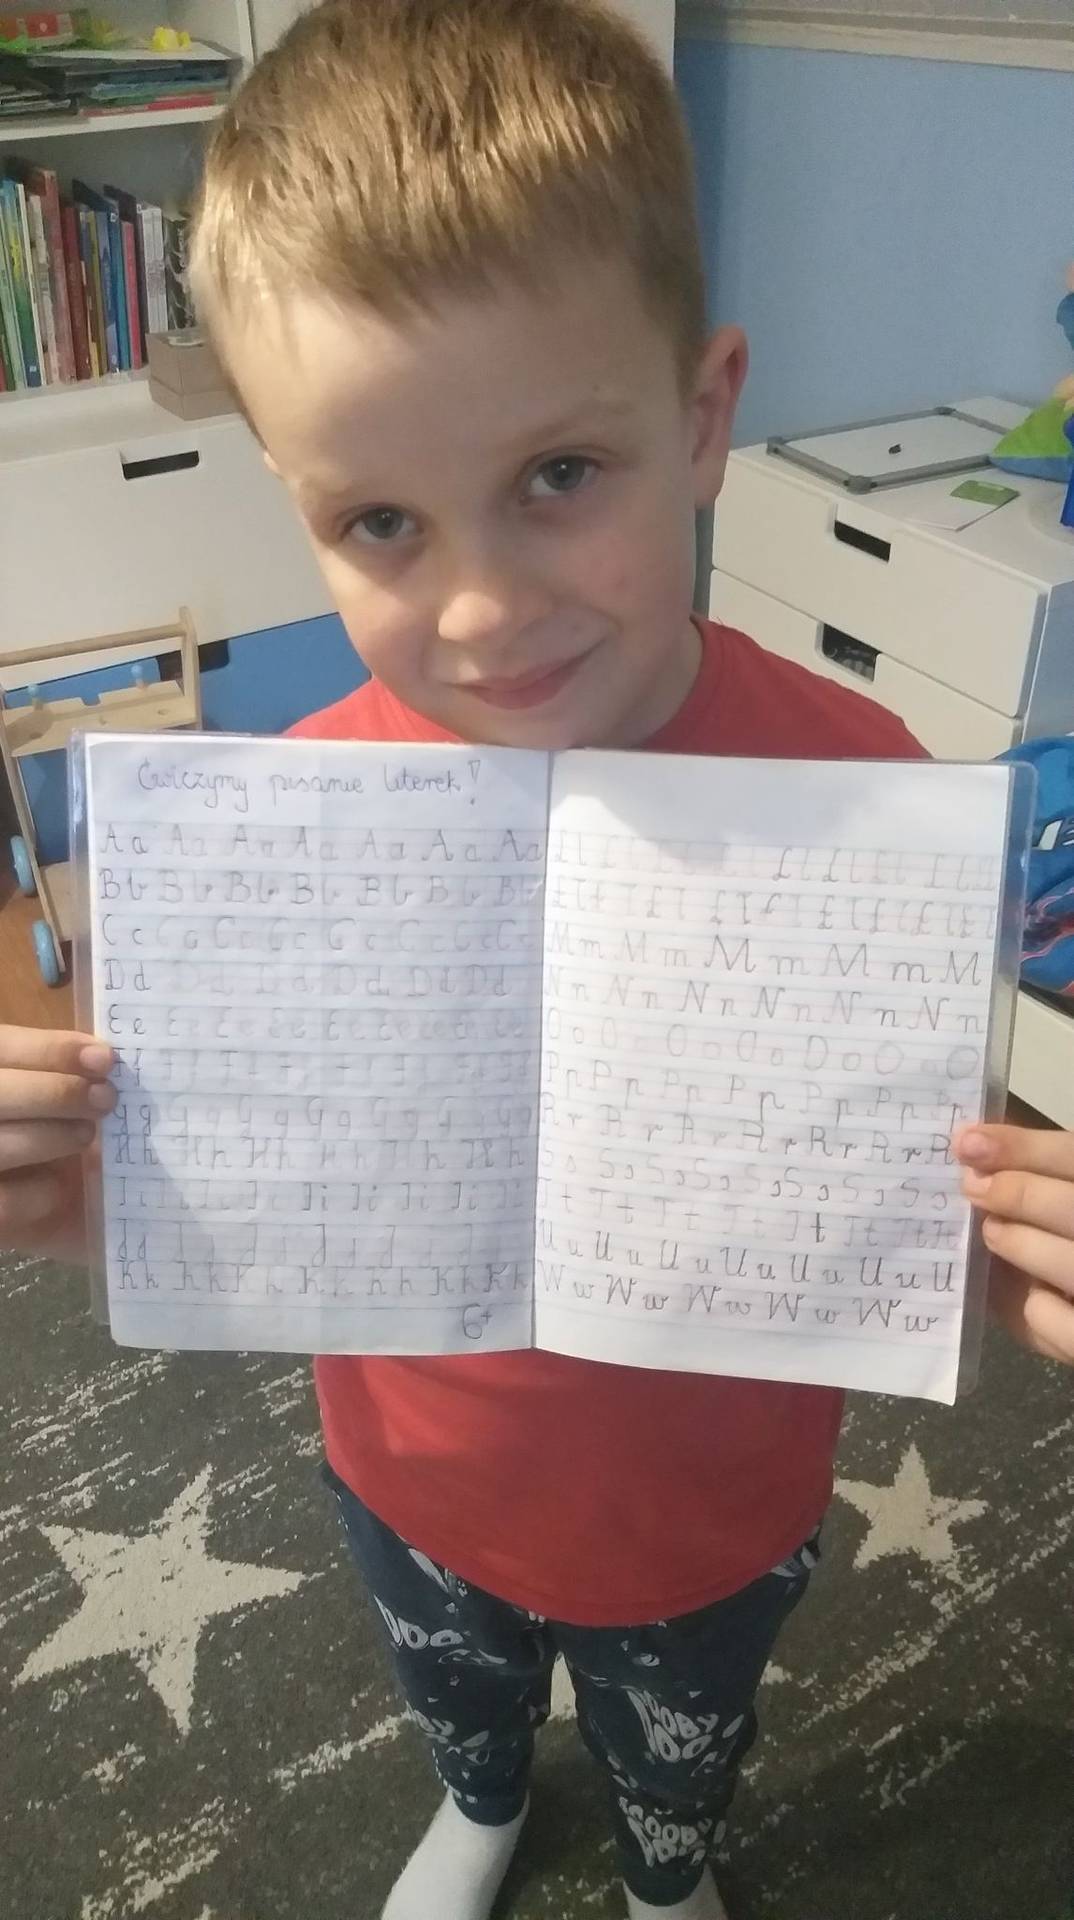 Ćwiczymy pisanie literek!
A a A a A a A a A a A a A a
B b B b B b B b B b B b B b
C c C c C c C c C c C c C c C c
D d D d D d D d D d D d
E e E e E e E e E e E e E e
F f F f F f
G g G g G g G g G g G g G g
H h H h H h H h H h H h
I i I i I i I i I i I i I i
J j J j J j J j J j
K k K k K k K k K k K k K k
6+
M m M m M m M m M
N n N n N n N n N n N n N n
O o O o O o O o O o O o O
P p P p P p P p P p P p P p
R r R r R r R r R r R r R
S s S s S s S s S s S s S s S s
T t T t T t T t T t T t T t T t
U u U u U u U u U u U u U
W w W w W w W w W w
SCOOBY
DOO